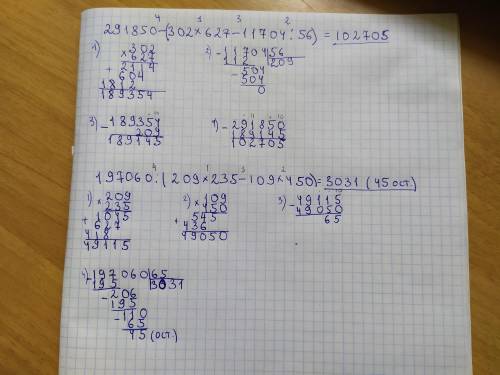 4 1 3 2
291850-(302×627-11704:56)=102705
1) ×302
627
+2114
604
1812
189354
2) -11704|56
112 |209
-504
504
0
3) -189354
209
189145
4) -291850
189145
102705
4 1 3 2
197060:(209×235-109×450)=3031 (45 ост.)
1) ×209
235
+1045
627
418
49115
2) ×109
450
+545
436
49050
3) -49115
49050
65
4) -197060|65
195 |3031
-206
195
-110
65
45 (ост.)